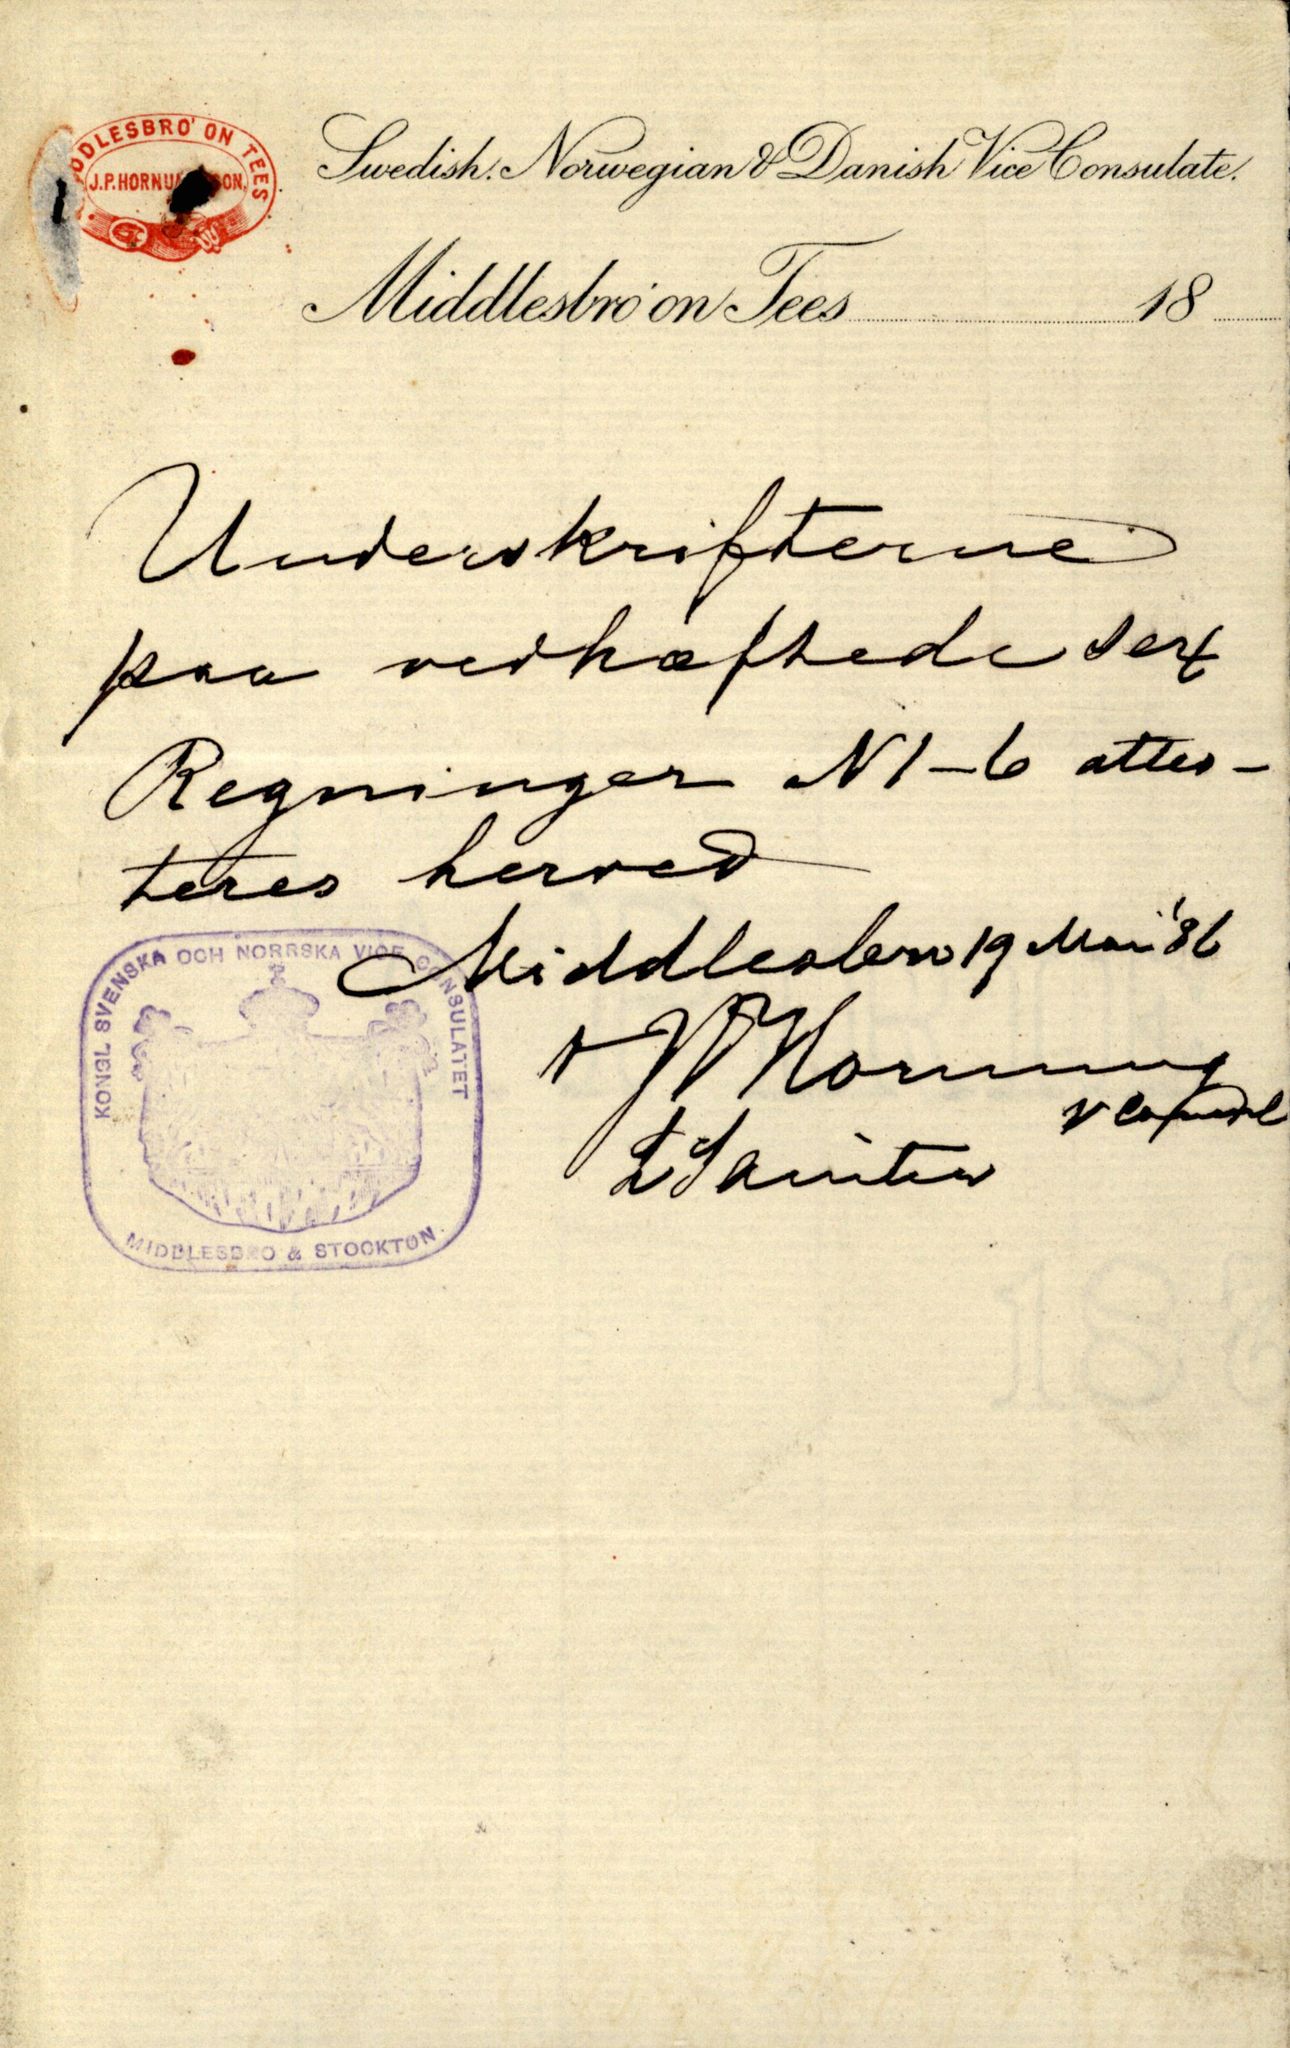 MIDDLESBRO' ON TEES
J.P. HORNUNG & SON.
Swedish. Norwegian & Danish Vice Consulate.
Middlesbro' on Tees 18
Underskrifterne
paa vedhæftede sex
Regninger N 1-6 attes-
teres herved
Middlesbro 19 Mai '86
Hornung
v Consul
KONGL SVENSKA OCH NORRSKA VICE CONSULATET
MIDDLESBRO & STOCKTON.